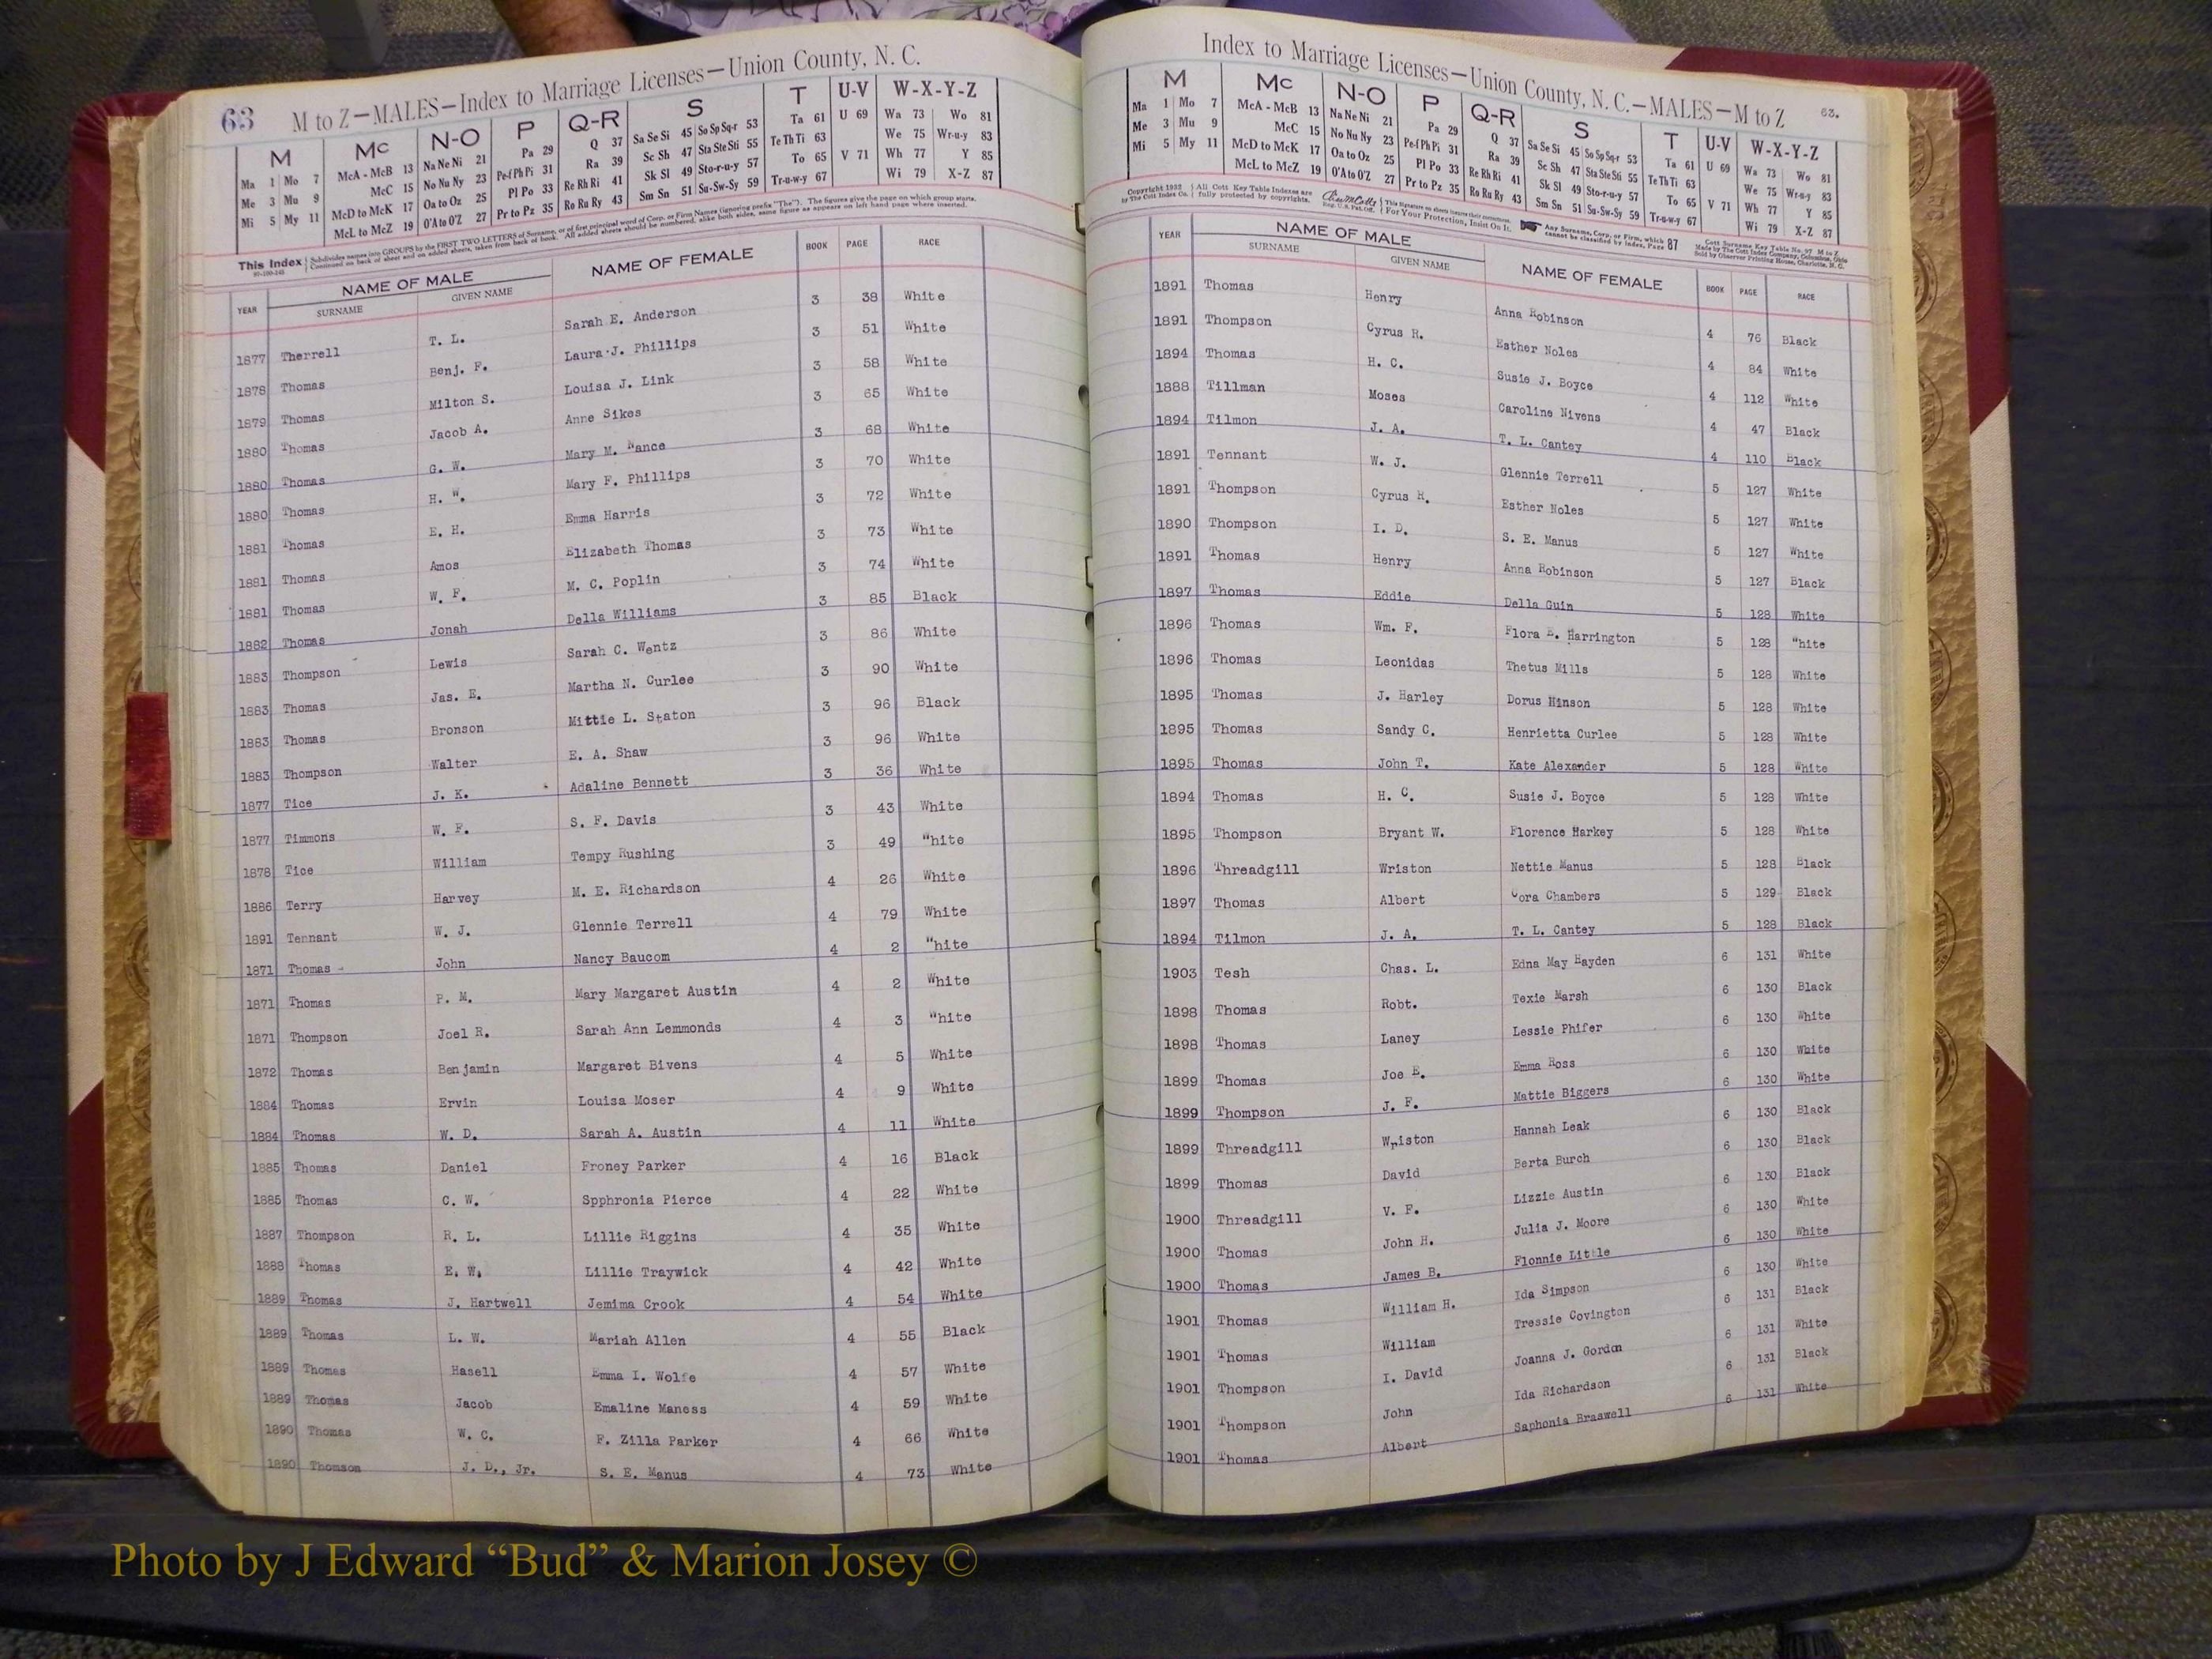 63 M to Z—MALES—Index to Marriage Licenses—Union County, N. C.
M Mc N-O P Q-R S T U-V W-X-Y-Z
Ma 1 Mo 7 McA - McB 13 Na Ne Ni 21 Pa 29 Q 37 Sa Se Si 45 So Sp Sq-r 53 Ta 61 U 69 Wa 73 Wo 81
Me 3 Mu 9 McC 15 No Nu Ny 23 Pe-f Ph Pi 31 Ra 39 Sc Sh 47 Sta Ste Sti 55 Te Th Ti 63 We 75 Wr-u-y 83
Mi 5 My 11 McD to McK 17 Oa to Oz 25 Pl Po 33 Re Rh Ri 41 Sk Sl 49 Sto-r-u-y 57 To 65 V 71 Wh 77 Y 85
McL to McZ 19 O'A to O'Z 27 Pr to Pz 35 Ro Ru Ry 43 Sm Sn 51 Su-Sw-Sy 59 Tr-u-w-y 67 Wi 79 X-Z 87
This Index Subdivides names into GROUPS by the FIRST TWO LETTERS of Surname, or of first principal word of Corp. or Firm Names (ignoring prefix "The"). The figures give the page on which group starts.
Continued on back of sheet and on added sheets, taken from back of book. All added sheets should be numbered, alike both sides, same figure as appears on left hand page where inserted.
YEAR NAME OF MALE NAME OF FEMALE BOOK PAGE RACE
SURNAME GIVEN NAME
1877 Therrell T. L. Sarah E. Anderson 3 38 White
1878 Thomas Benj. F. Laura J. Phillips 3 51 White
1879 Thomas Milton S. Louisa J. Link 3 58 White
1880 Thomas Jacob A. Anne Sikes 3 65 White
1880 Thomas G. W. Mary M. Nance 3 68 White
1880 Thomas H. W. Mary F. Phillips 3 70 White
1881 Thomas E. H. Emma Harris 3 72 White
1881 Thomas Amos Elizabeth Thomas 3 73 White
1881 Thomas W. F. M. C. Poplin 3 74 White
1882 Thomas Jonah Della Williams 3 85 Black
1883 Thompson Lewis Sarah C. Wentz 3 86 White
1883 Thomas Jas. E. Martha N. Curlee 3 90 White
1883 Thomas Bronson Mittie L. Staton 3 96 Black
1883 Thompson Walter E. A. Shaw 3 96 White
1877 Tice J. K. Adaline Bennett 3 36 White
1877 Timmons W. F. S. F. Davis 3 43 White
1878 Tice William Tempy Rushing 3 49 "hite
1886 Terry Harvey M. E. Richardson 4 26 White
1891 Tennant W. J. Glennie Terrell 4 79 White
1871 Thomas John Nancy Baucom 4 2 "hite
1871 Thomas P. M. Mary Margaret Austin 4 2 White
1871 Thompson Joel R. Sarah Ann Lemmonds 4 3 "hite
1872 Thomas Benjamin Margaret Bivens 4 5 White
1884 Thomas Ervin Louisa Moser 4 9 White
1884 Thomas W. D. Sarah A. Austin 4 11 White
1885 Thomas Daniel Froney Parker 4 16 Black
1885 Thomas C. W. Spphronia Pierce 4 22 White
1887 Thompson R. L. Lillie Riggins 4 35 White
1888 Thomas E. W. Lillie Traywick 4 42 White
1889 Thomas J. Hartwell Jemima Crook 4 54 White
1889 Thomas L. W. Mariah Allen 4 55 Black
1889 Thomas Hasell Emma I. Wolfe 4 57 White
1889 Thomas Jacob Emaline Maness 4 59 White
1890 Thomas W. C. F. Zilla Parker 4 66 White
1890 Thomson J. D., Jr. S. E. Manus 4 73 White
Index to Marriage Licenses—Union County, N. C.—MALES—M to Z 63.
M Mc N-O P Q-R S T U-V W-X-Y-Z
Ma 1 Mo 7 McA - McB 13 Na Ne Ni 21 Pa 29 Q 37 Sa Se Si 45 So Sp Sq-r 53 Ta 61 U 69 Wa 73 Wo 81
Me 3 Mu 9 McC 15 No Nu Ny 23 Pe-f Ph Pi 31 Ra 39 Sc Sh 47 Sta Ste Sti 55 Te Th Ti 63 We 75 Wr-u-y 83
Mi 5 My 11 McD to McK 17 Oa to Oz 25 Pl Po 33 Re Rh Ri 41 Sk Sl 49 Sto-r-u-y 57 To 65 V 71 Wh 77 Y 85
McL to McZ 19 O'A to O'Z 27 Pr to Pz 35 Ro Ru Ry 43 Sm Sn 51 Su-Sw-Sy 59 Tr-u-w-y 67 Wi 79 X-Z 87
Copyright 1932 by The Cott Index Co. All Cott Key Table Indexes are fully protected by copyrights. For Your Protection, Insist On It. Any Surname, Corp. or Firm, which cannot be classified by index, Page 87
Made by The Cott Index Company, Columbus, Ohio
Sold by Observer Printing House, Charlotte, N. C.
YEAR NAME OF MALE NAME OF FEMALE BOOK PAGE RACE
SURNAME GIVEN NAME
1891 Thomas Henry Anna Robinson 4 76 Black
1891 Thompson Cyrus R. Esther Noles 4 84 White
1894 Thomas H. C. Susie J. Boyce 4 112 White
1888 Tillman Moses Caroline Nivens 4 47 Black
1894 Tilmon J. A. T. L. Cantey 4 110 Black
1891 Tennant W. J. Glennie Terrell 5 127 White
1891 Thompson Cyrus R. Esther Noles 5 127 White
1890 Thompson I. D. S. E. Manus 5 127 White
1891 Thomas Henry Anna Robinson 5 127 Black
1897 Thomas Eddie Della Guin 5 128 White
1896 Thomas Wm. F. Flora E. Harrington 5 128 "hite
1896 Thomas Leonidas Thetus Mills 5 128 White
1895 Thomas J. Harley Dorus Hinson 5 128 White
1895 Thomas Sandy C. Henrietta Curlee 5 128 White
1895 Thomas John T. Kate Alexander 5 128 White
1894 Thomas H. C. Susie J. Boyce 5 128 White
1895 Thompson Bryant W. Florence Harkey 5 128 White
1896 Threadgill Wriston Nettie Manus 5 128 Black
1897 Thomas Albert Cora Chambers 5 129 Black
1894 Tilmon J. A. T. L. Cantey 5 128 Black
1903 Tesh Chas. L. Edna May Hayden 6 131 White
1898 Thomas Robt. Texie Marsh 6 130 Black
1898 Thomas Laney Lessie Phifer 6 130 White
1899 Thomas Joe E. Emma Ross 6 130 White
1899 Thompson J. F. Mattie Biggers 6 130 White
1899 Threadgill Wriston Hannah Leak 6 130 Black
1899 Thomas David Berta Burch 6 130 Black
1900 Threadgill V. F. Lizzie Austin 6 130 Black
1900 Thomas John H. Julia J. Moore 6 130 White
1900 Thomas James B. Flonnie Little 6 130 White
1901 Thomas William H. Ida Simpson 6 130 White
1901 Thomas William Tressie Covington 6 131 Black
1901 Thompson I. David Joanna J. Gordon 6 131 White
1901 Thompson John Ida Richardson 6 131 Black
1901 Thomas Albert Saphonia Braswell 6 131 White
Photo by J Edward “Bud” & Marion Josey ©